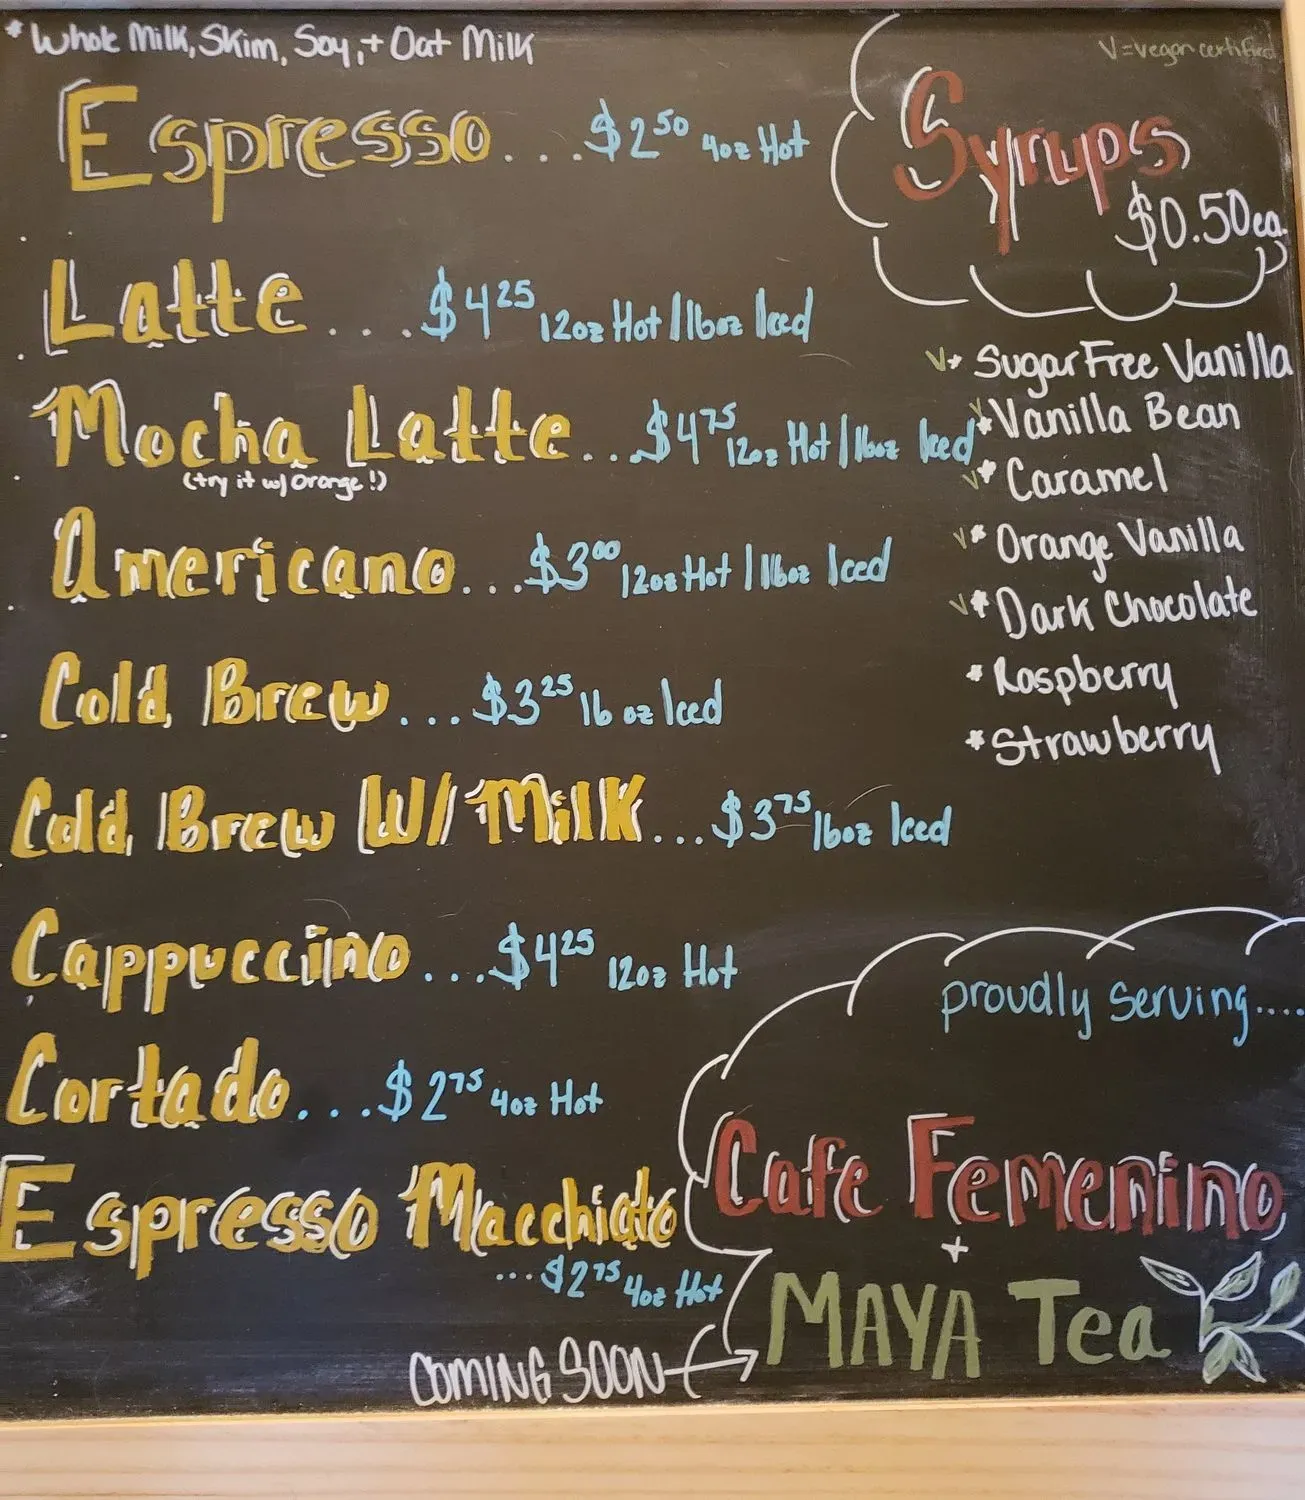 * Whole Milk, Skim, Soy, + Oat Milk
V=vegan certified
Espresso...$2⁵⁰ 4oz Hot
Latte....$4²⁵ 12oz Hot/16oz Iced
Mocha Latte...$4⁷⁵ 12oz Hot/16oz Iced
(try it w/ Orange!)
Americano...$3⁰⁰ 12oz Hot | 16oz Iced
Cold Brew...$3²⁵ 16 oz Iced
Cold Brew W/ Milk...$3⁷⁵ 16oz Iced
Cappuccino...$4²⁵ 12oz Hot
Cortado...$2⁷⁵ 4oz Hot
Espresso Macchiato
...$2⁷⁵ 4oz Hot
Syrups
$0.50 ea.
V* Sugar Free Vanilla
V* Vanilla Bean
V* Caramel
V* Orange Vanilla
V* Dark Chocolate
* Raspberry
* Strawberry
proudly serving....
Cafe Femenino
+
MAYA Tea
COMING SOON